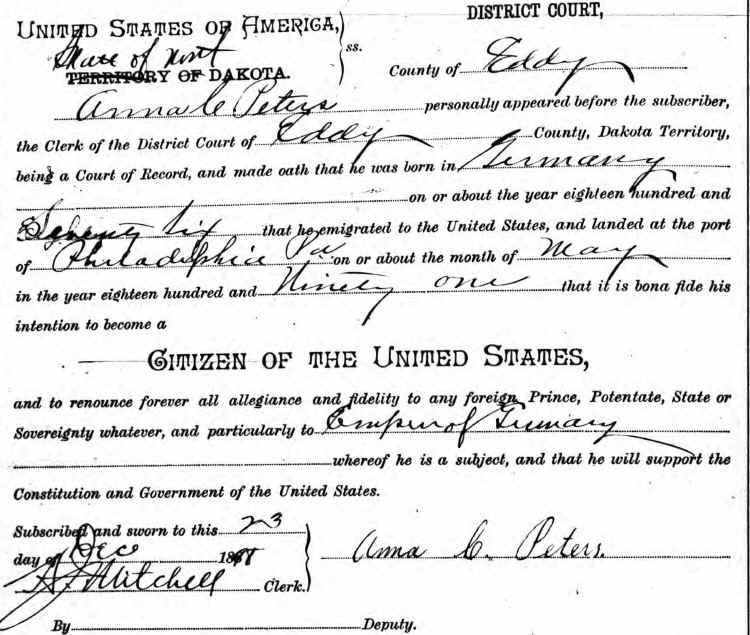 DISTRICT COURT,
UNITED STATES OF AMERICA,
State of North
TERRITORY OF DAKOTA.
ss.
County of Eddy
Anna C Peters personally appeared before the subscriber,
the Clerk of the District Court of Eddy County, Dakota Territory,
being a Court of Record, and made oath that he was born in Germany
on or about the year eighteen hundred and
Seventy Six that he emigrated to the United States, and landed at the port
of Philadelphia Pa on or about the month of May
in the year eighteen hundred and Ninety one that it is bona fide his
intention to become a
CITIZEN OF THE UNITED STATES,
and to renounce forever all allegiance and fidelity to any foreign Prince, Potentate, State or
Sovereignty whatever, and particularly to Emperor of Germany
whereof he is a subject, and that he will support the
Constitution and Government of the United States.
Subscribed and sworn to this 23
day of Dec 18
Anna C. Peters.
Mitchell Clerk.
By Deputy.